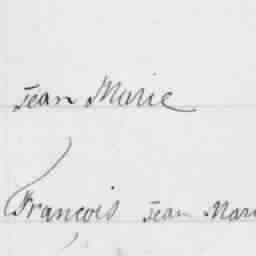 Jean Marie
François Jean Mari